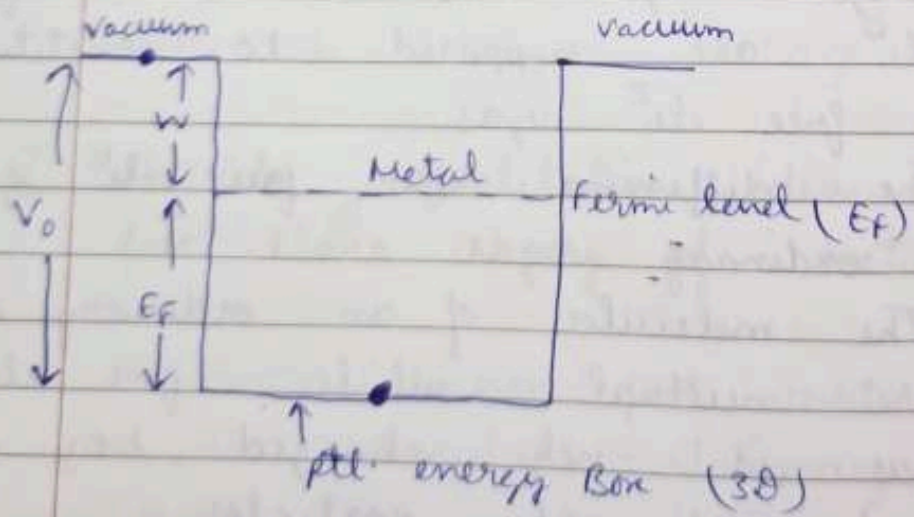 vacuum vacuum
W
Metal
V₀ Fermi level (EF)
EF
ptl. energy Box (3D)